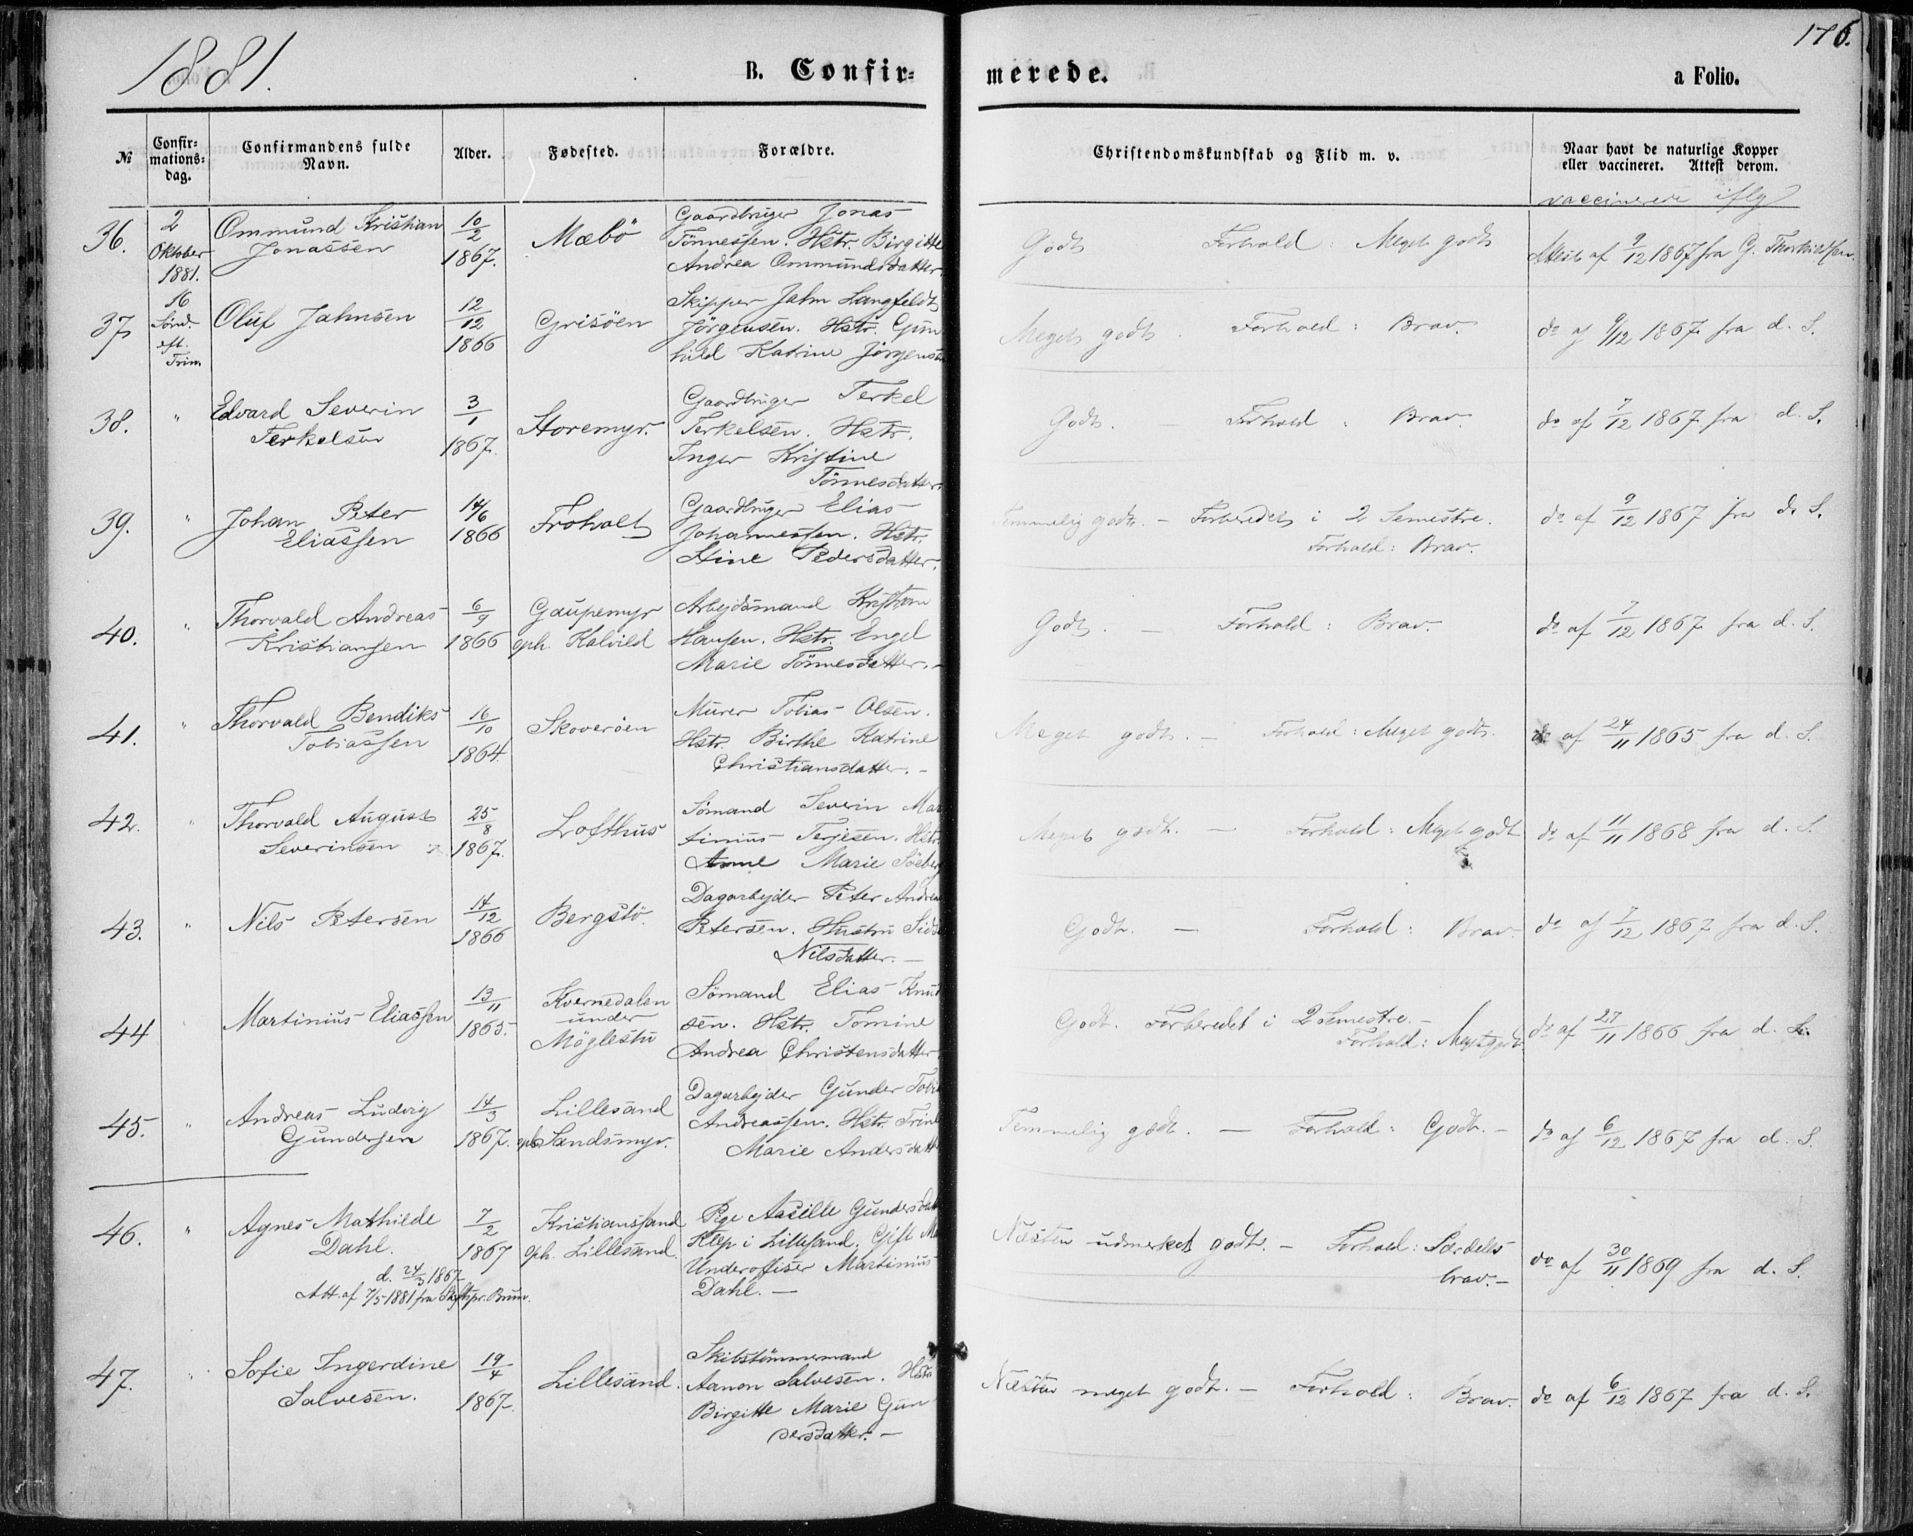 1881.
B. Confir=
merede.
a Folio.
176.
№
Confir-
mations=
dag.
Confirmandens fulde
Navn.
Alder.
Fødested.
Forældre.
Christendomskundskab og Flid m. v.
Naar havt de naturlige Kopper
eller vaccineret. Attest derom.
vaccinerede iflg
36.
2
Oktober
1881.
16
Sönd.
eft.
Trin.
Ommund Kristian
Jonassen
10/2
1867.
Mæbö
Gaardbruger Jonas
Tönnessen. Hstr. Birgitte
Andrea Ommundsdatter.
Godt Forhold: Meget godt
Attest af 9/12 1867 fra G. Thorkildsen.
37
Oluf Jahnsen
12/12
1866
Grisöen
Skipper Jahn Langfeldt
Jörgensen. Hstr. Gun
hild Katrine Jörgensen
Meget godt Forhold: Brav.
do af 9/12 1867 fra d. S.
38.
"
Edvard Severin
Terkelsen
3/1
1867.
Storemyr.
Gaardbruger Terkel
Terkelsen. Hstr.
Inger Kristine
Tönnesdatter.
Godt. — Forhold: Brav.
do af 7/12 1867 fra d. S.
39.
"
Johan Peter
Eliassen
14/6
1866
Froholt
Gaardbruger Elias
Johannessen. Hstr.
Stine Pedersdatter.
Temmelig godt. — Forberedet i 2 Semestre.
Forhold: Brav.
do af 9/12 1867 fra d. S.
40.
"
Thorvald Andreas
Kristiansen
6/9
1866
Gaupemyr
oph. Kalvild
Arbejdsmand Kristian
Hansen. Hstr. Engel
Marie Tönnesdatter. —
Godt. — Forhold: Brav.
do af 7/12 1867 fra d. S.
41.
"
Thorvald Bendiks
Tobiassen
16/10
1864.
Skoveröen
Murer Tobias Olsen.
Hstr. Birthe Katrine
Christiansdatter. —
Meget godt. — Forhold: Meget godt.
do af 24/11 1865 fra d. S.
42.
"
Thorvald August
Severinsen
25/8
1867.
Lofthus
Sömand Severin Mar
tinius Terjesen. Hstr.
Anne Marie Söeberg
Meget godt. — Forhold: Meget godt
do af 11/11 1868 fra d. S.
43.
"
Nils Petersen
14/12
1866
Bergstö.
Dagarbejder Peter Andrea
Petersen. Hustru Sidse
Nilsdatter. —
Godt. — Forhold: Brav.
do af 7/12 1867 fra d. S.
44
"
Martinius Eliassen
13/11
1865.
Kvernedalen
under
Möglestu
Sömand Elias Knut
sen. Hstr. Tomine
Andrea Christensdatter
Godt. Forberedet i 2 Semestre. —
Forhold: Meget godt.
do af 27/11 1866 fra d. S.
45.
"
Andreas Ludvig
Gundersen
14/3
1867.
Lillesand
oph. Sandsmyr.
Dagarbejder Gunder Tobi
Andreassen. Hstr. Trine
Marie Andersdatte
Temmelig godt. — Forhold: Godt. —
do af 6/12 1867 fra d. S.
46.
"
Agnes Mathilde
Dahl.
d. 24/3 1867
Att. af 7/5 1881 fra Stiftspr. Bruun.
7/2
1867
Kristianssand
oph. Lillesand.
Pige Aasille Gundersdat
Klep i Lillesand. Gift M
Underofiser Martinius
Dahl. —
Næsten udmerket godt. — Forhold: Særdeles
brav. —
do af 30/11 1869 fra d. S.
47.
"
Sofie Ingerdine
Salvesen.
19/4
1867.
Lillesand.
Skibstömmermand
Aanon Salvesen. Hstr
Birgitte Marie Gun
dersdatter. —
Næsten meget godt. — Forhold: Brav.
do af 6/12 1867 fra d. S.